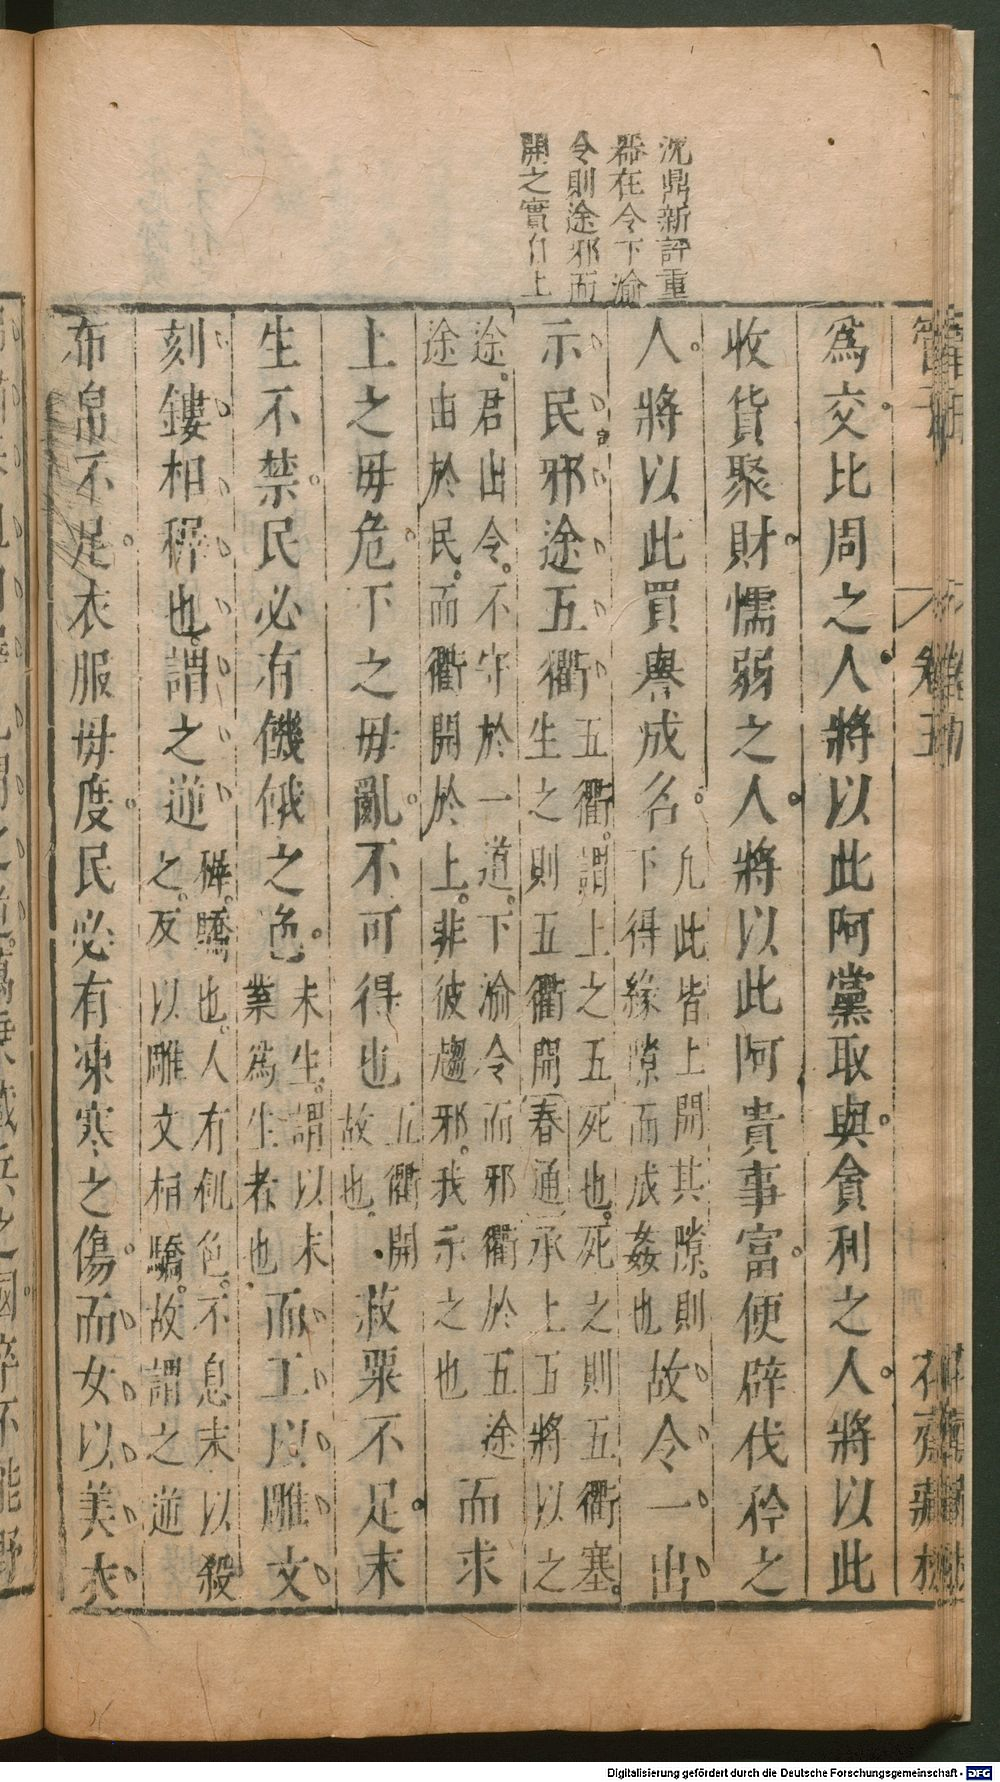 沈鼎新評重
器在令下渝
令則途邪而
開之實自上
管子
卷五
花齋藏板
爲交比周之人將以此阿黨取與貪利之人將以此
收貨聚財懦弱之人將以此阿貴事富便辟伐矜之
人將以此買譽成名凡此皆上開其隙則下得緣隙而成姦也故令一出
示民邪途五衢五衢謂上之五死也死之則五衢塞生之則五衢開春通承上五將以之
途君出令不守於一道下渝令而邪衢於五途而求
途由於民而衢開於上非彼趨邪我示之也
上之毋危下之毋亂不可得也五衢開故也菽粟不足末
生不禁民必有饑餓之色末生謂以末業爲生者也而工以雕文
刻鏤相稺也謂之逆稺驕也人有飢色不息末以殺之反以雕文相驕故謂之逆
布帛不足衣服毋度民必有凍寒之傷而女以美衣
Digitalisierung gefördert durch die Deutsche Forschungsgemeinschaft - DFG